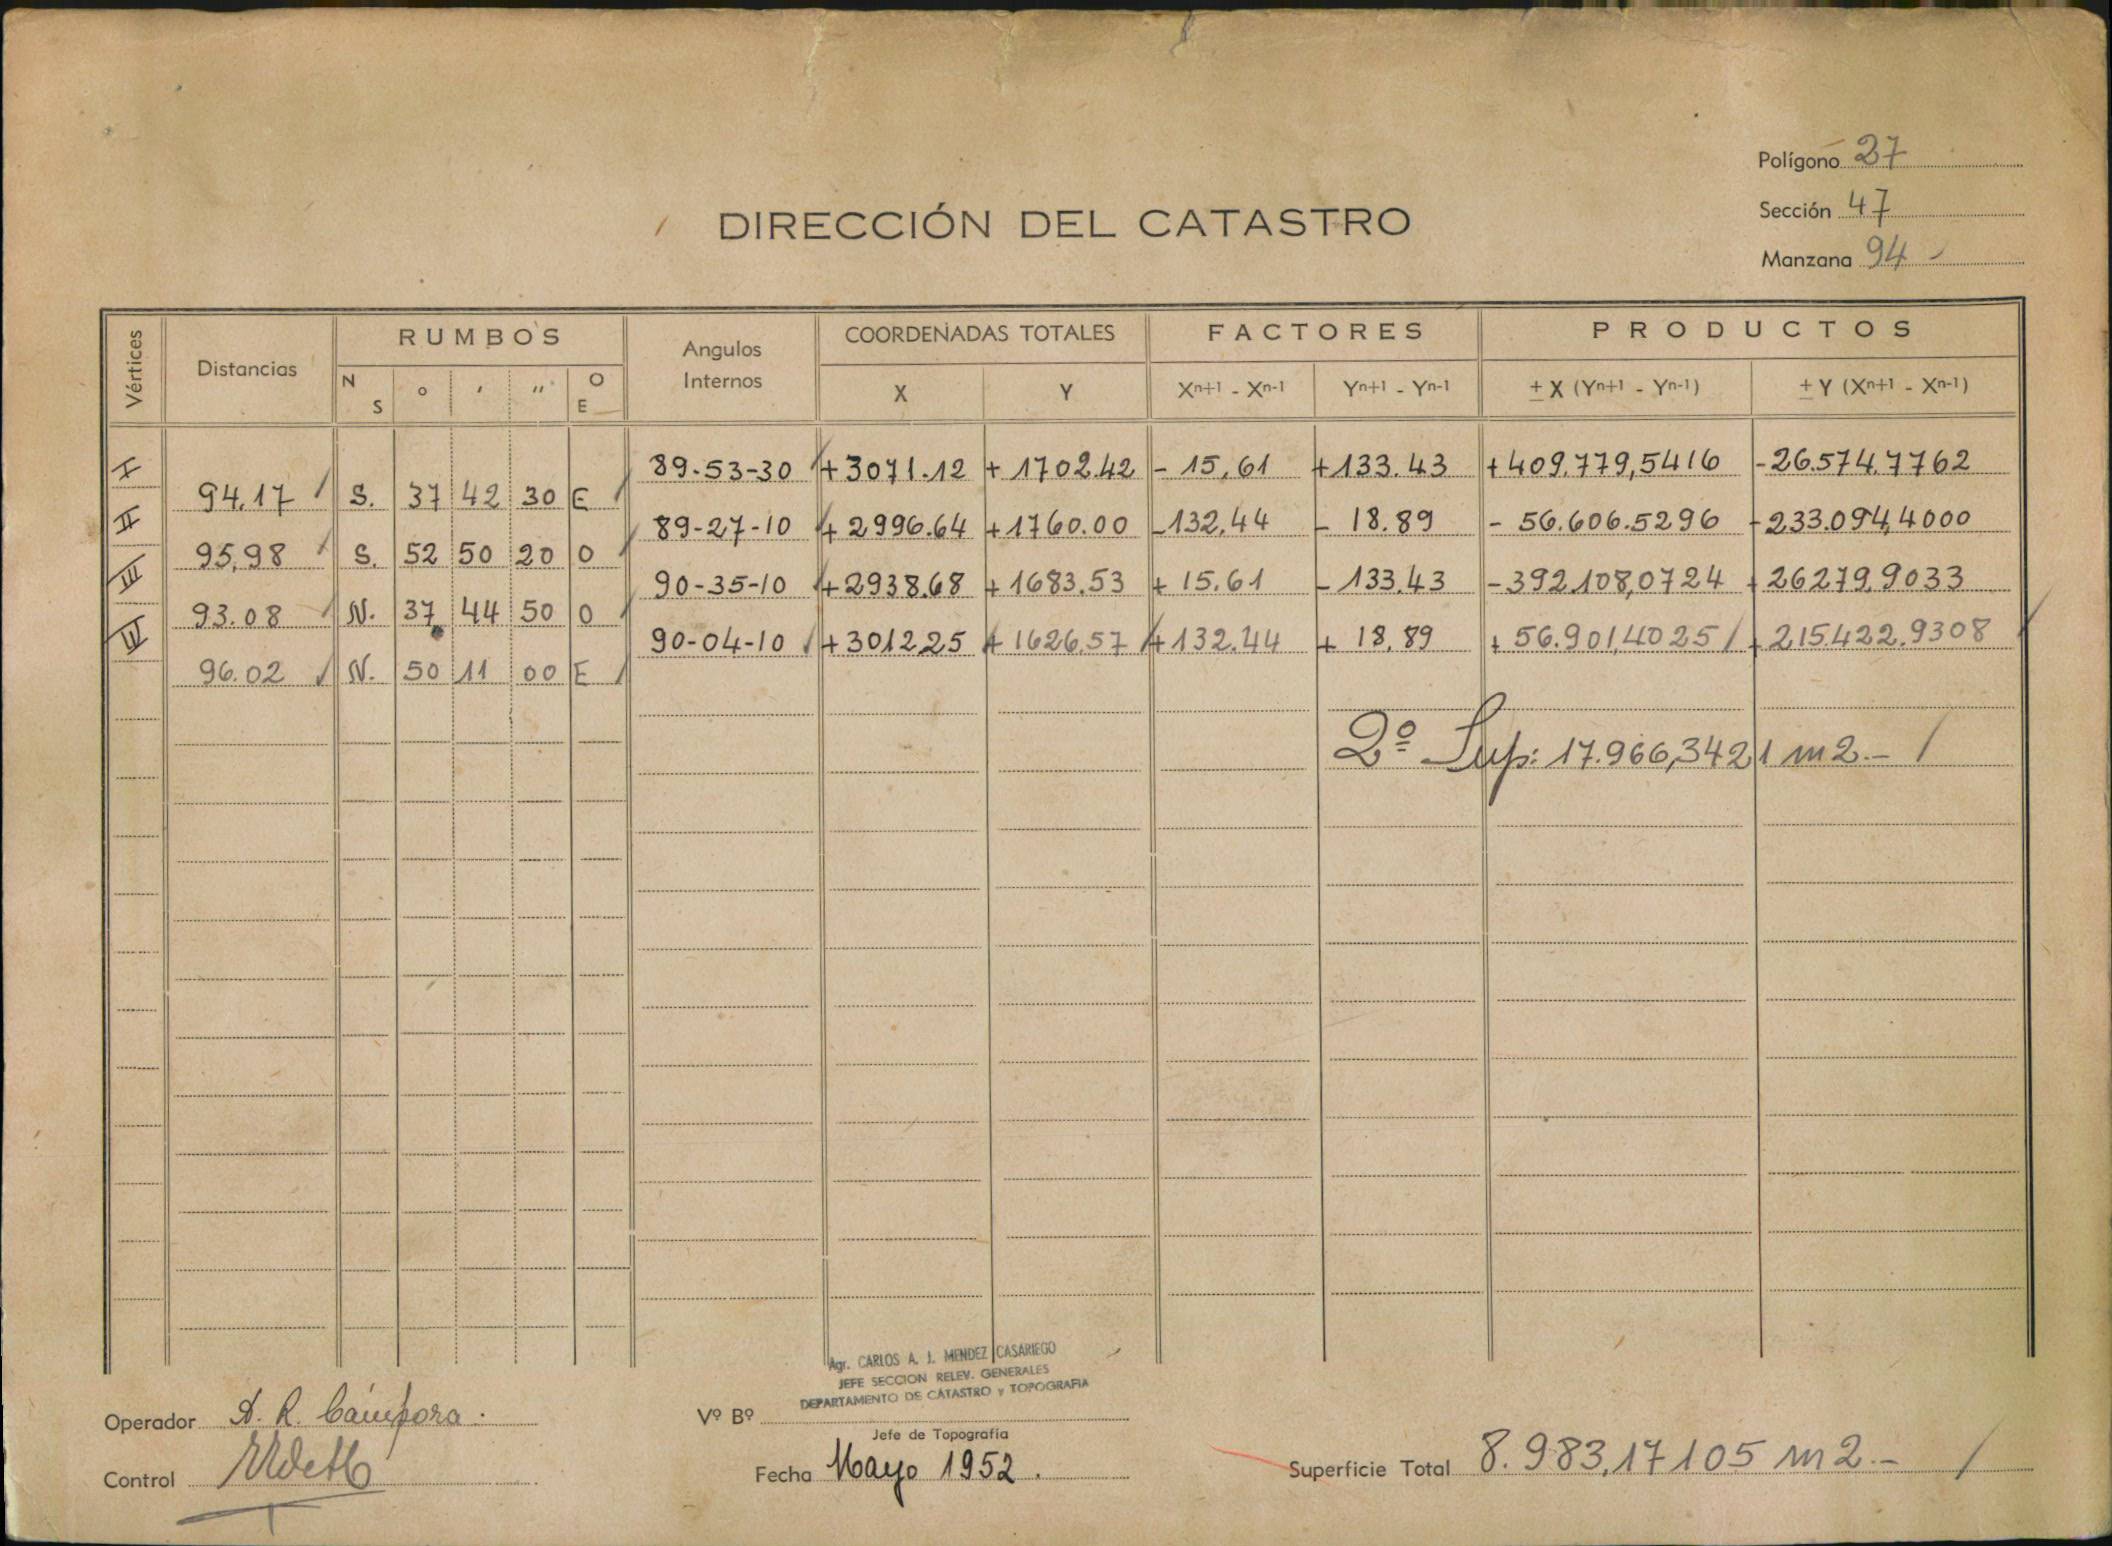 Polígono 27
Sección 47
Manzana 94
DIRECCIÓN DEL CATASTRO
Vértices Distancias RUMBOS Angulos Internos COORDENADAS TOTALES FACTORES PRODUCTOS
N S ° ' " O E X Y Xn+1 - Xn-1 Yn+1 - Yn-1 ± X (Yn+1 - Yn-1) ± Y (Xn+1 - Xn-1)
I 89-53-30 +3071.12 +1702.42 - 15,61 +133.43 +409.779,5416 -26.574.7762
94.17 S. 37 42 30 E
II 89-27-10 +2996.64 +1760.00 -132,44 - 18.89 - 56.606.5296 -233.094,4000
95,98 S. 52 50 20 O
III 90-35-10 +2938.68 +1683.53 + 15.61 - 133.43 -392.108,0724 +26279,9033
93.08 N. 37 44 50 O
IV 90-04-10 +3012,25 +1626,57 +132.44 + 18,89 + 56.901,4025 +215.422.9308
96.02 N. 50 11 00 E
2º Sup: 17.966,3421 m2.-
Agr. CARLOS A. J. MENDEZ CASARIEGO
JEFE SECCION RELEV. GENERALES
DEPARTAMENTO DE CATASTRO y TOPOGRAFIA
Operador A. R. Cámpora.
Vº Bº
Jefe de Topografía
Control
Fecha Mayo 1952.
Superficie Total 8.983,17105 m2.-